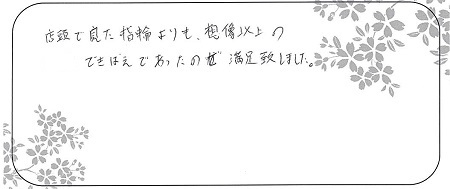 店頭で見た指輪よりも、想像以上の
できばえであったので満足致しました。